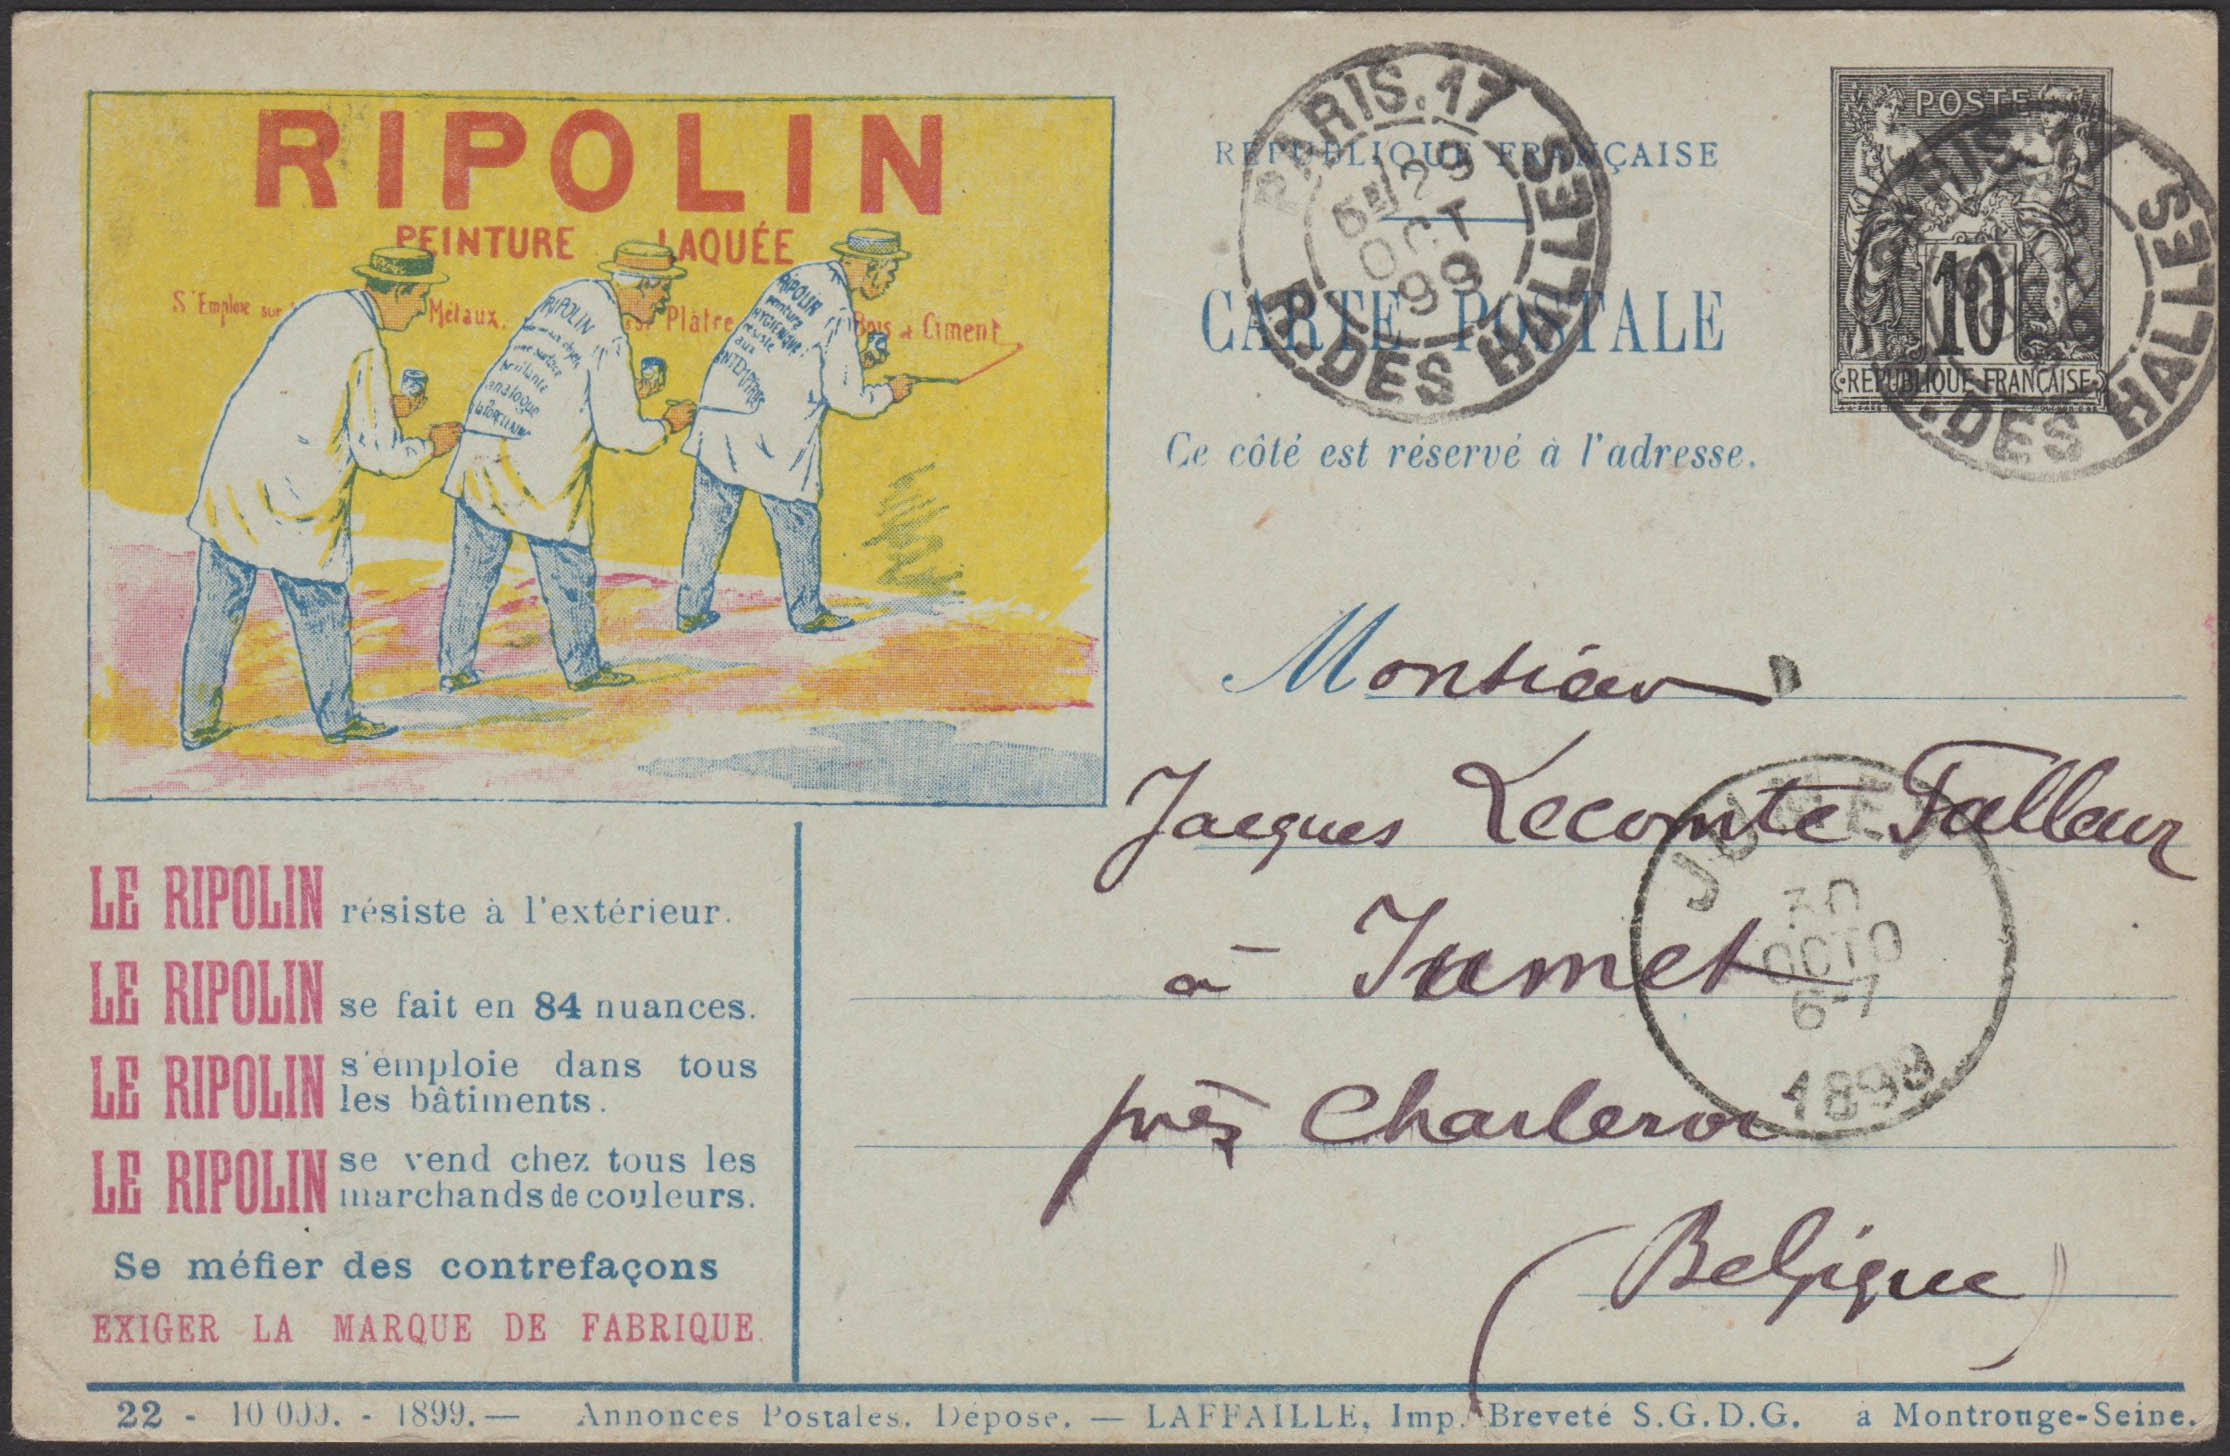 RIPOLIN
PEINTURE LAQUÉE
S'Emploie sur Métaux. Plâtre Bois et Ciment
RIPOLIN
une surface
brillante
analogue
à la PORCELAINE
RIPOLIN
peinture
HYGIENIQUE
résiste
aux
INTEMPÉRIES
LE RIPOLIN résiste à l'extérieur.
LE RIPOLIN se fait en 84 nuances.
LE RIPOLIN s'emploie dans tous
les bâtiments.
LE RIPOLIN se vend chez tous les
marchands de couleurs.
Se méfier des contrefaçons
EXIGER LA MARQUE DE FABRIQUE.
RÉPUBLIQUE FRANÇAISE
CARTE POSTALE
Ce côté est réservé à l'adresse.
PARIS.17
29
OCT
99
R. DES HALLES
POSTES
10
REPUBLIQUE FRANÇAISE
DES HALLES
Monsieur
Jacques Lecomte Falleur
à Jumet
près Charleroi
(Belgique)
JUMET
30
OCTO
6-7
1899
22 - 10 000. - 1899. — Annonces Postales. Déposé. — LAFFAILLE, Imp. Breveté S.G.D.G. à Montrouge-Seine.